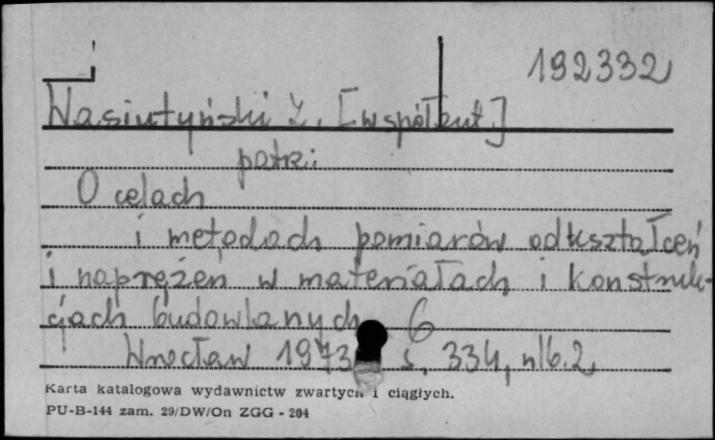 192332
Wasiutyński Z. [współaut.]
patrz:
O celach
i metodach pomiarów odkształceń
i naprężeń w materiałach i konstruk-
cjach budowlanych 6
Wrocław 1973 s. 334, nlb. 2.
Karta katalogowa wydawnictw zwartych i ciągłych.
PU-B-144 zam. 29/DW/On ZGG - 204